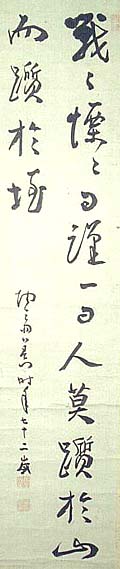 戰々慄々日謹一日人莫躓於山
而躓於垤
時年七十二歳